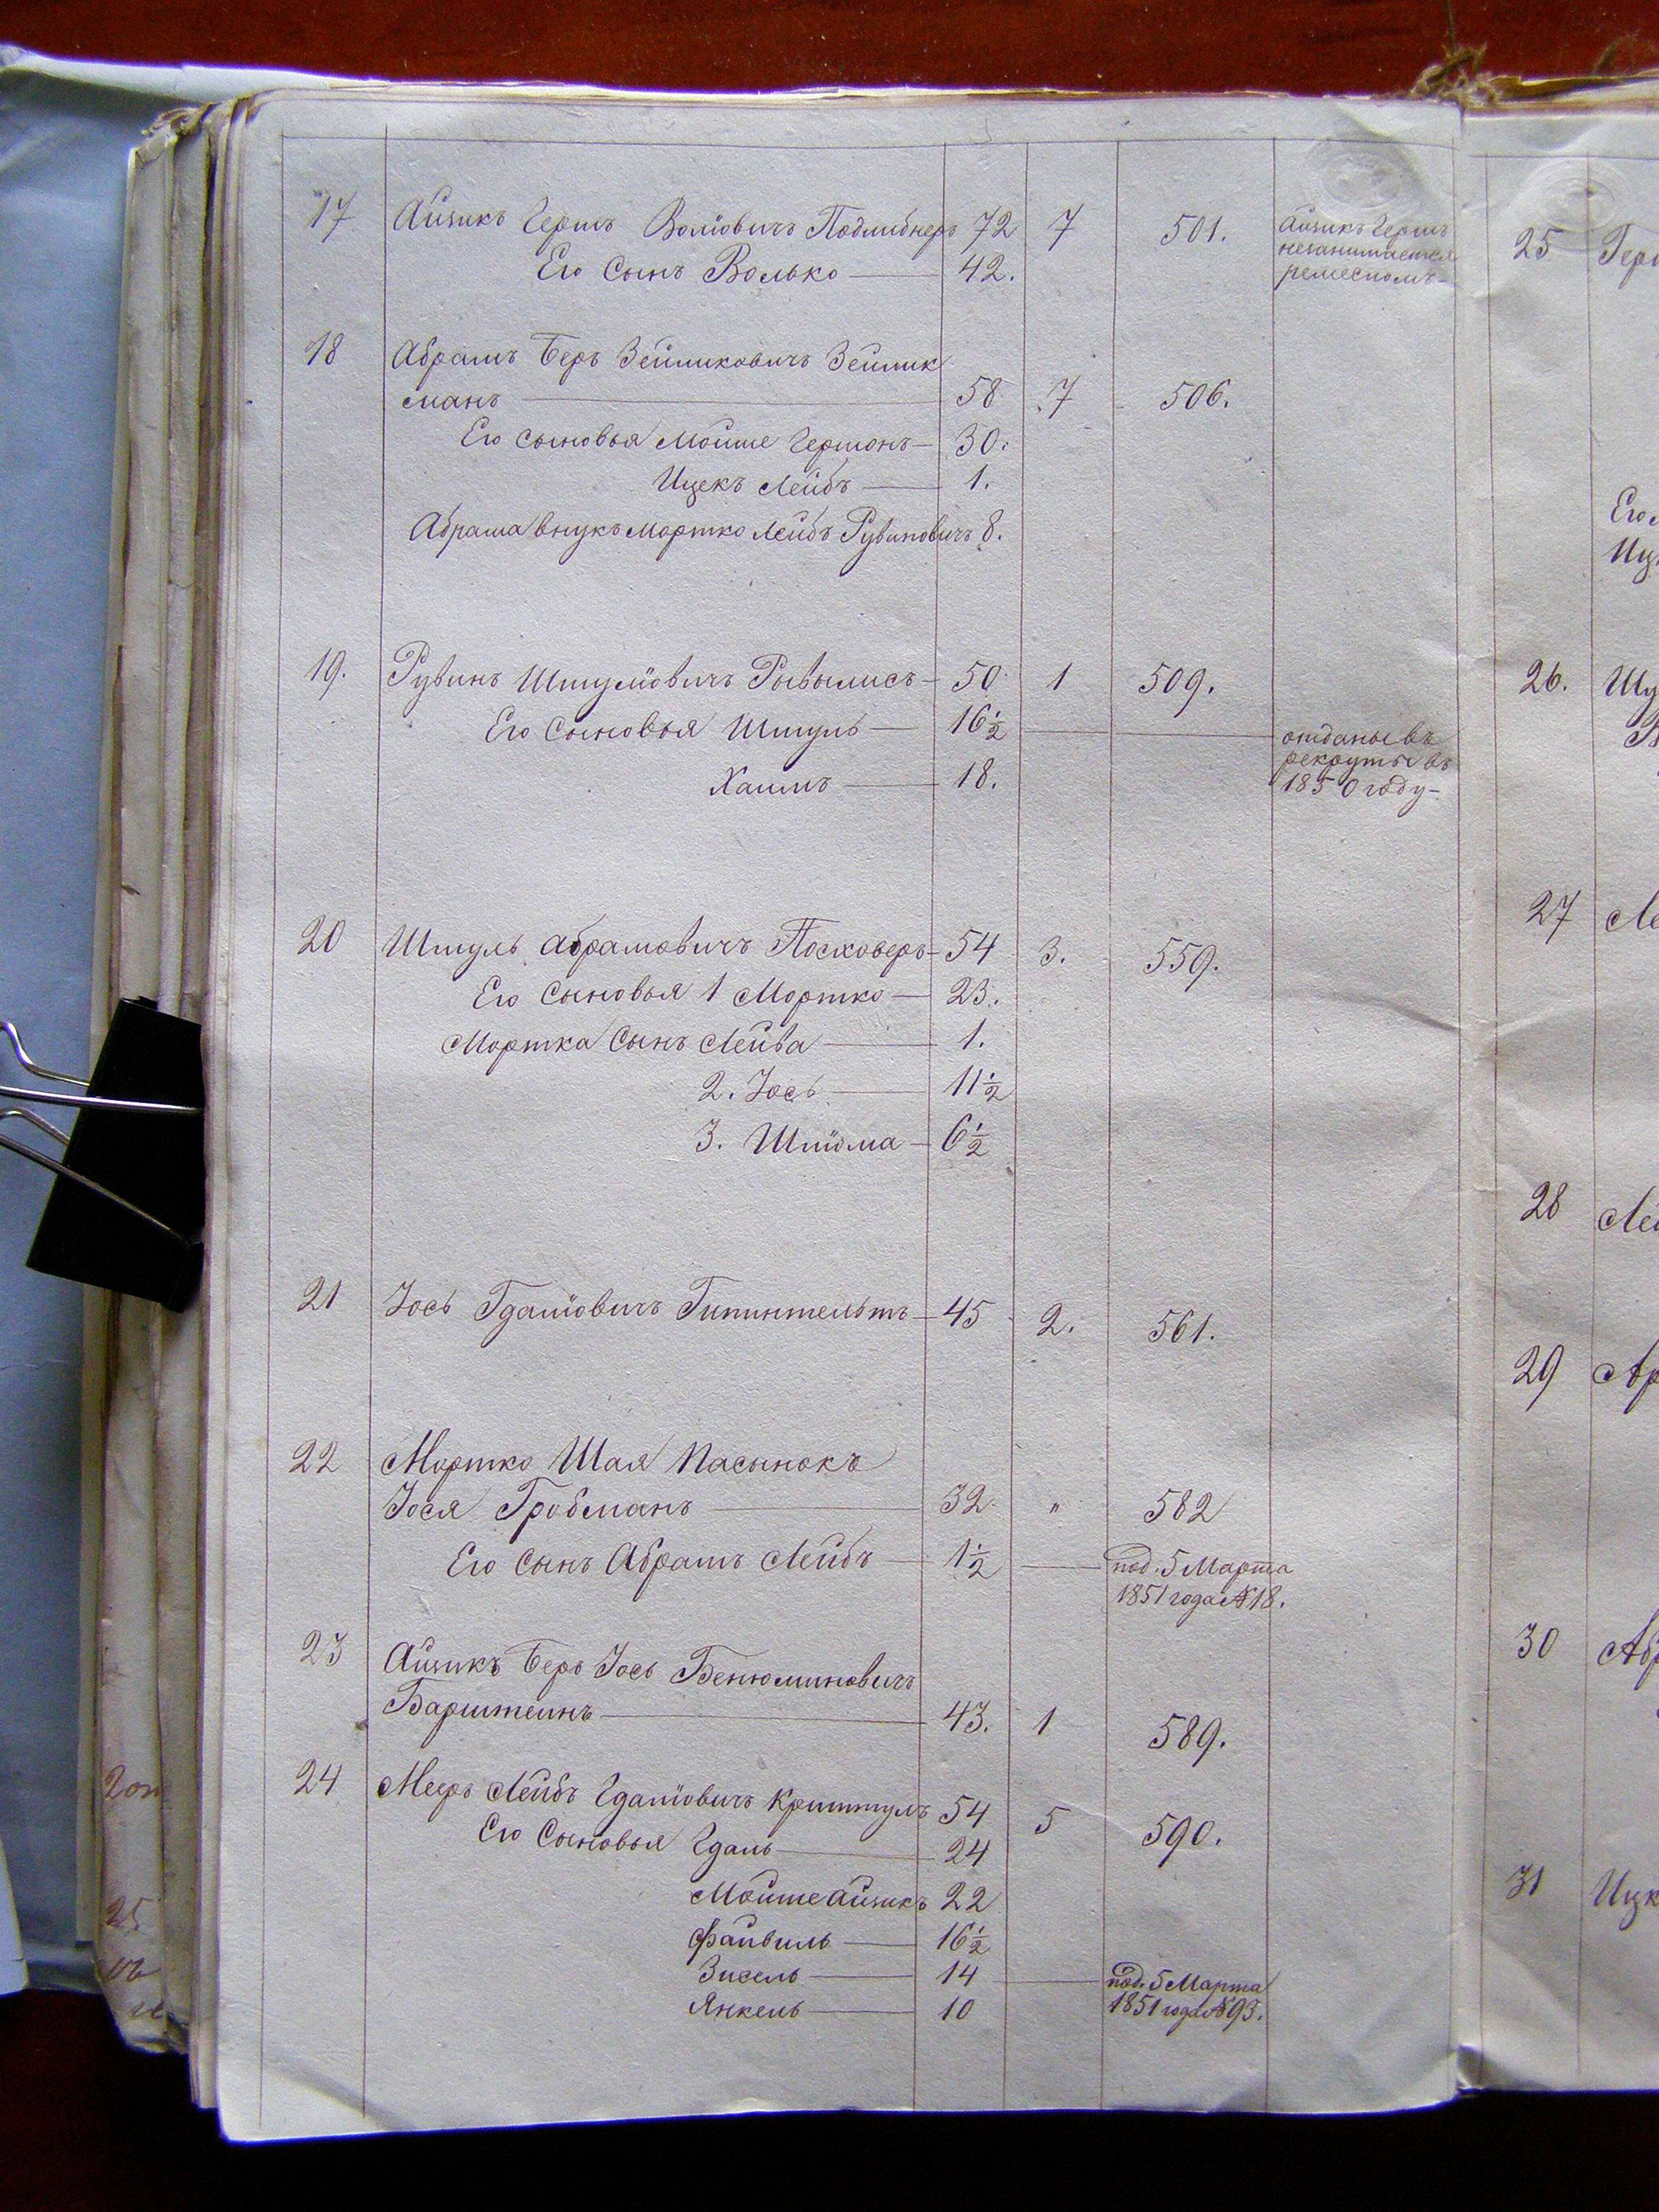 17 Айзикъ Гершъ Волїовичъ Подлибнеръ 72 7 501. Айзикъ Гершъ
незанимается
Его Сынъ Волько 42. ремесломъ
18 Абрамъ Беръ Зейликовичъ Зейлик
манъ 58 7 506.
Его сыновья Мойше Гершонъ 30.
Ицекъ Лейбъ 1.
Абрама внукъ Мортко Лейбъ Рувиновичъ 8.
19. Рувинъ Шмулїовичъ Рывылисъ 50 1 509.
Его Сыновья Шмуль 16½ отданы въ
рекруты въ
Хаимъ 18. 1850 году
20 Шмуль Абрамовичъ Посковеръ 54 3. 559.
Его Сыновья 1 Мортко 23.
Мортка Сынъ Лейва 1.
2. Іось 11½
3. Шлїома 6½
21 Іось Гдалїовичъ 45 2. 561.
22 Мортко Шая Пасынокъ
Іося Гробманъ 32 " 582
Его Сынъ Абрамъ Лейбъ 1½ под. 5 Марта
1851 года № 18.
23 Айзикъ Беръ Іось Бенюминовичъ
Барштеинъ 43. 1 589.
24 Мееръ Лейбъ Гдалїовичъ Криштулъ 54 5 590.
Его Сыновья Гдаль 24
Мойше Айзикъ 22
Файвиль 16½
Зисель 14 под. 5 Марта
Янкель 10 1851 года № 93.
25 Гер
Его
Иц
26. Шу
27 Ле
28 Лей
29 Ар
30 Аб
31 Ицк